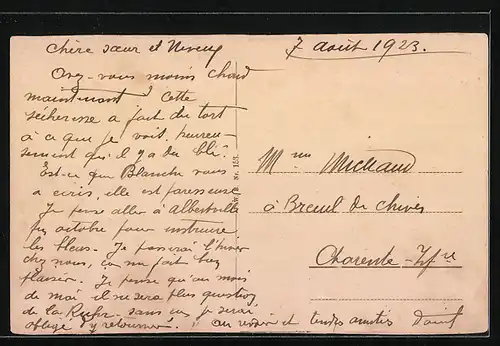 7 août 1923.
Chère sœur et Neveu
Avez-vous moins chaud
maintenant? cette
sécheresse a fait du tort
à ce que je vois. heureu-
sement qu'il y a du blé.
Est-ce que Blanche vous
a écris, elle est paresseuse
Je pense aller à Albertville
fin octobre pour instruire
les bleus. Je passerai l'hiver
chez nous, ça me fait bien
plaisir. Je pense qu'au mois
de mai il ne sera plus question
de la Ruhr sans ça je serai
obligé d'y retourner. au revoir et tendes amitiés
Nr. 153.
Mme Michaud
à Breuil de Chives
Charente-Infre